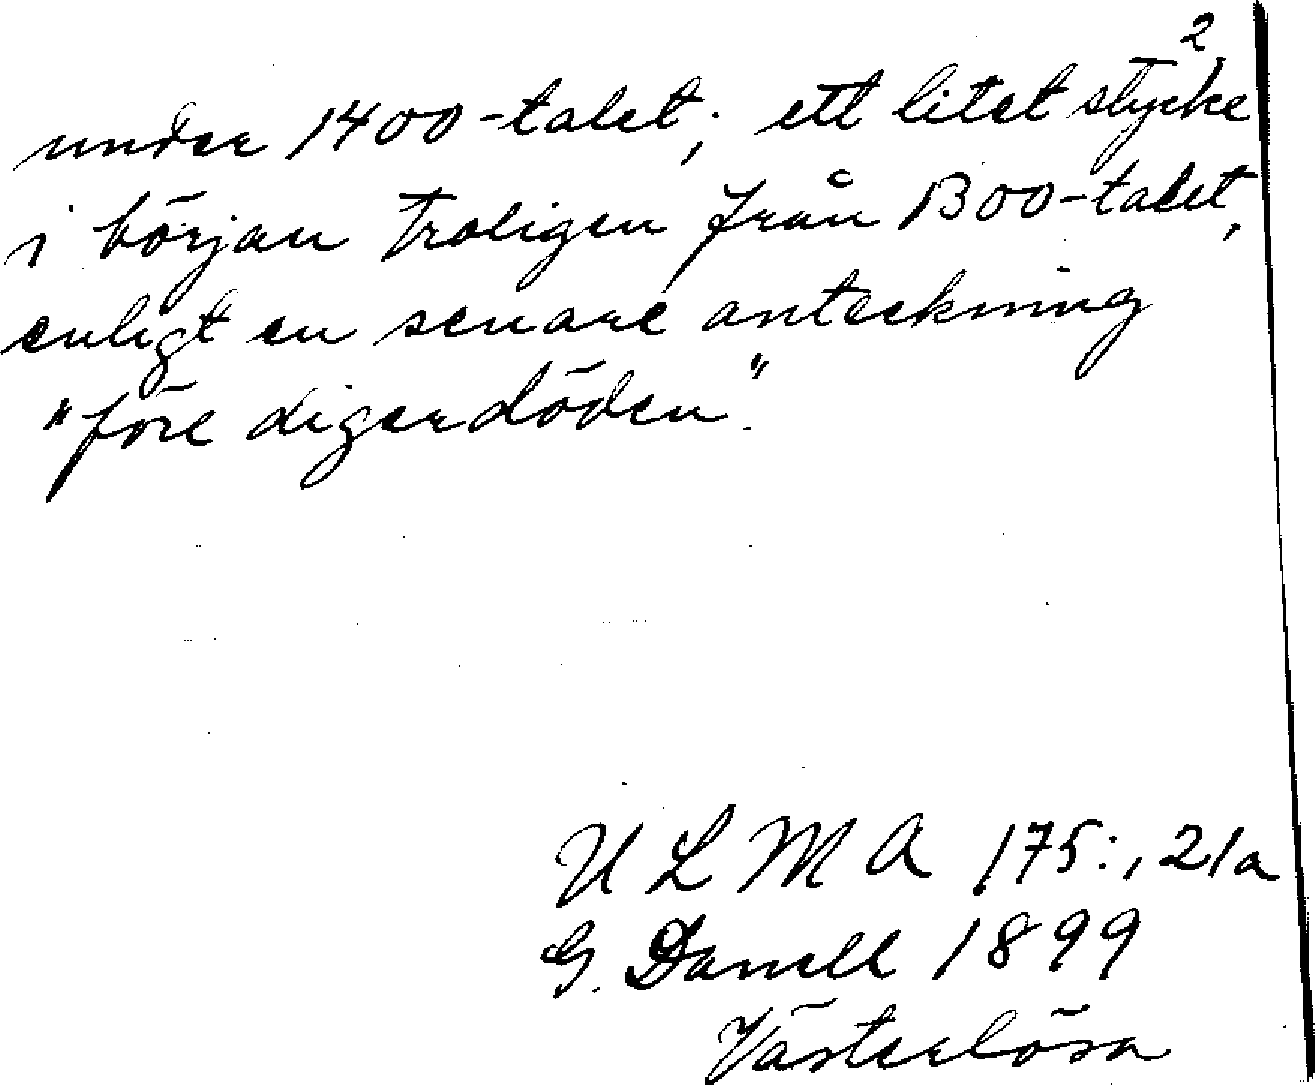 2
under 1400-talet; ett litet stycke
i början troligen från 1300-talet,
enligt en senare anteckning
"före digerdöden".
ULMA 175:, 21a
G. Danell 1899
Västerlösa